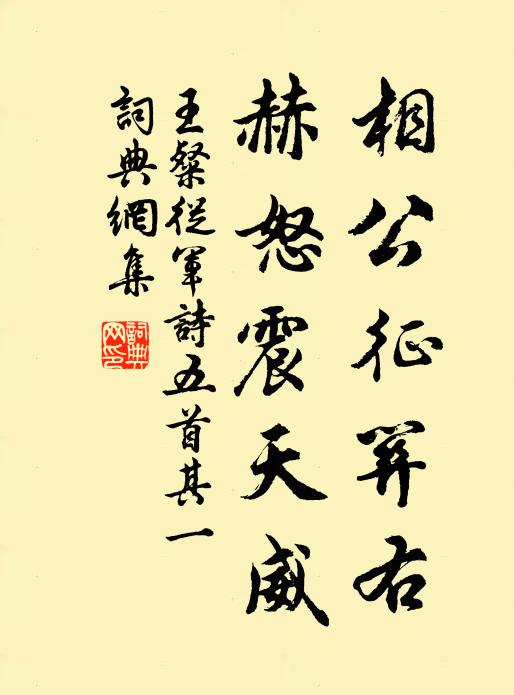 相公征關右
赫怒震天威
王粲從軍詩五首其一
詞典網集
詞典網印